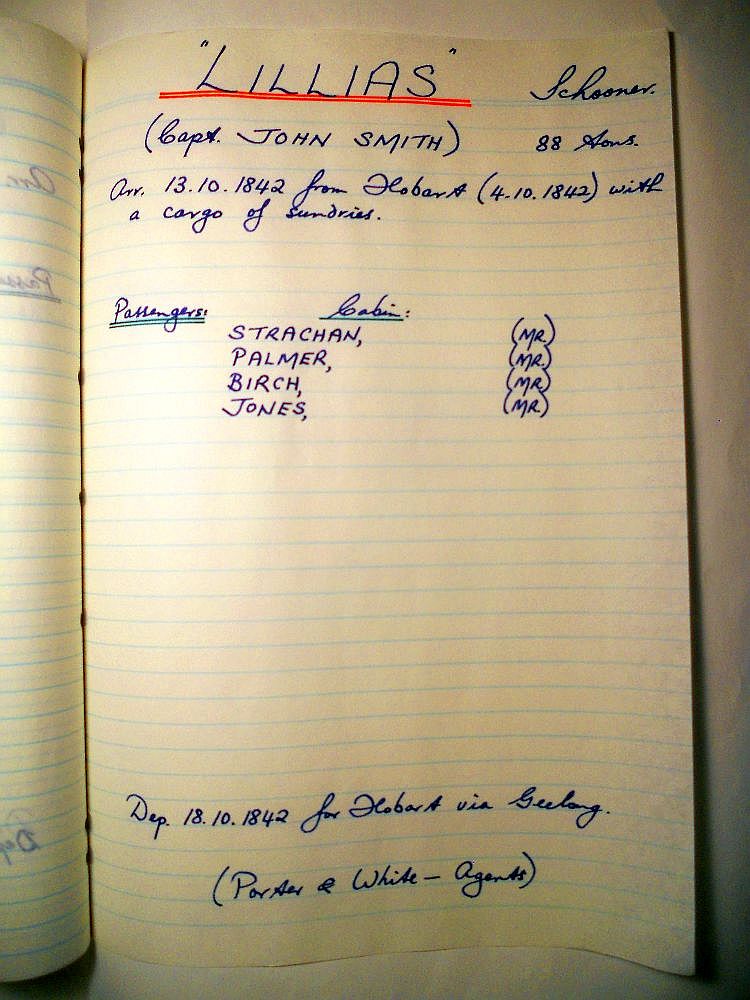 "LILLIAS" Schooner.
(Capt. JOHN SMITH) 88 tons.
Arr. 13.10.1842 from Hobart (4.10.1842) with
a cargo of sundries.
Passengers: Cabin:
STRACHAN, (MR.)
PALMER, (MR.)
BIRCH, (MR.)
JONES, (MR.)
Dep. 18.10.1842 for Hobart via Geelong.
(Porter & White - Agents)